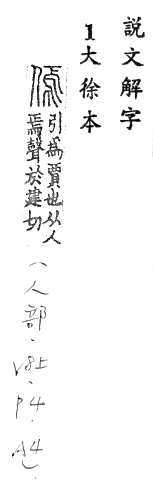 說文解字
1大徐本
傿 引爲賈也从人
焉聲於建切
八人部.V8上.P4.A4.